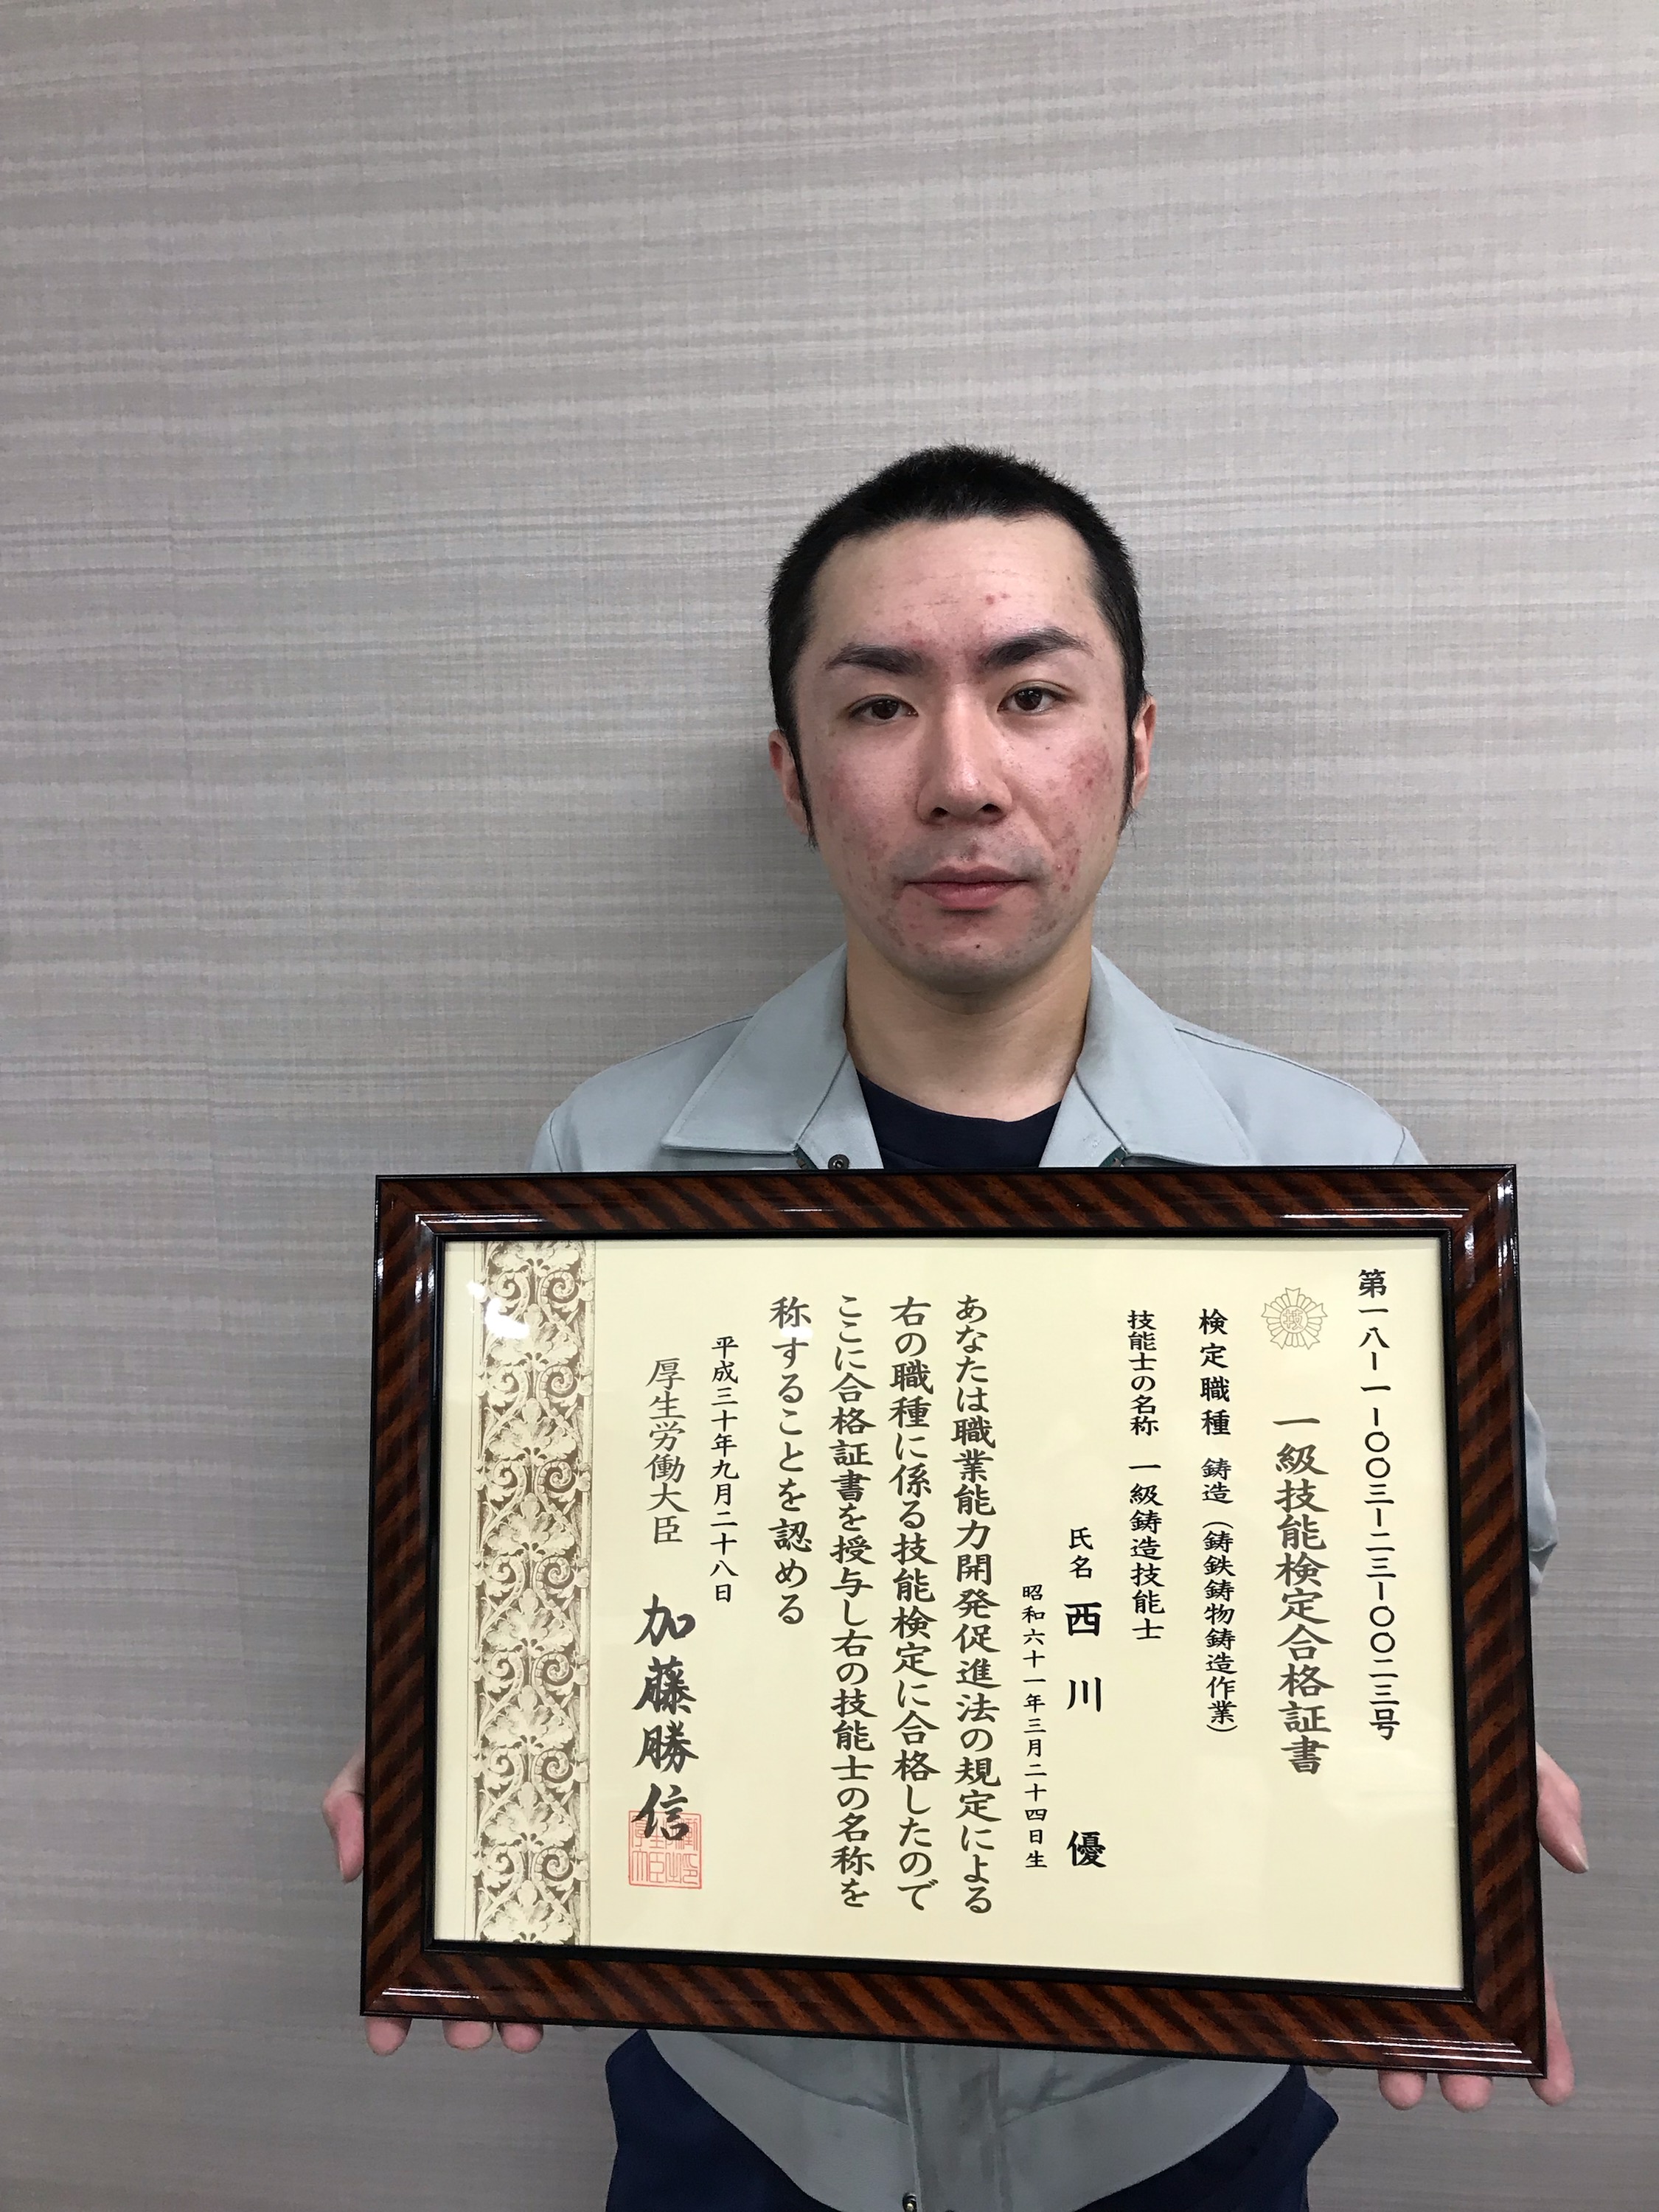 第一八-一-〇〇三-二三-〇〇二三号
一級技能検定合格証書
検定職種 鋳造(鋳鉄鋳物鋳造作業)
技能士の名称 一級鋳造技能士
氏名 西川 優
昭和六十一年三月二十四日生
あなたは職業能力開発促進法の規定による
右の職種に係る技能検定に合格したので
ここに合格証書を授与し右の技能士の名称を
称することを認める
平成三十年九月二十八日
厚生労働大臣 加藤勝信